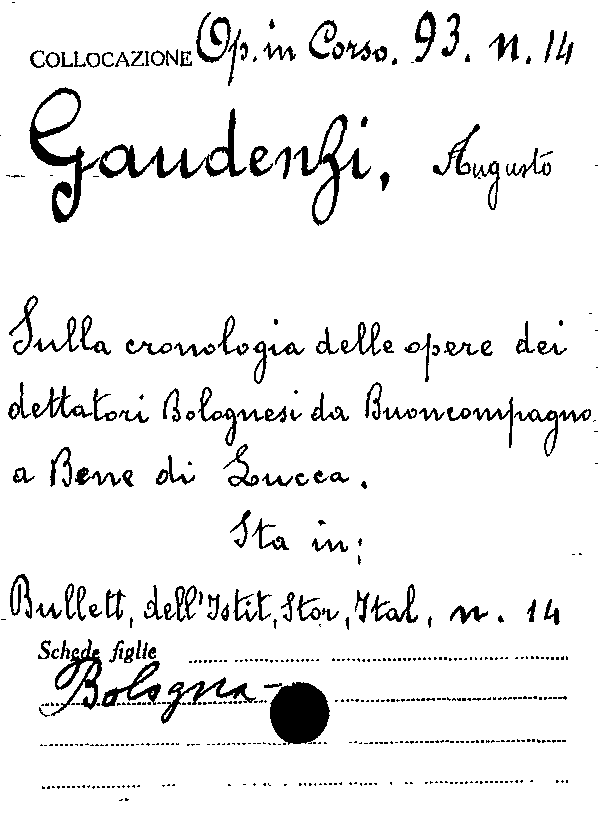 COLLOCAZIONE Op. in Corso. 93. n. 14
Gaudenzi, Augusto
Sulla cronologia delle opere dei
dettatori Bolognesi da Buoncompagno
a Bene di Lucca.
Sta in:
Bullett, dell'Istit, Stor, Ital, n. 14
Schede figlie
Bologna -